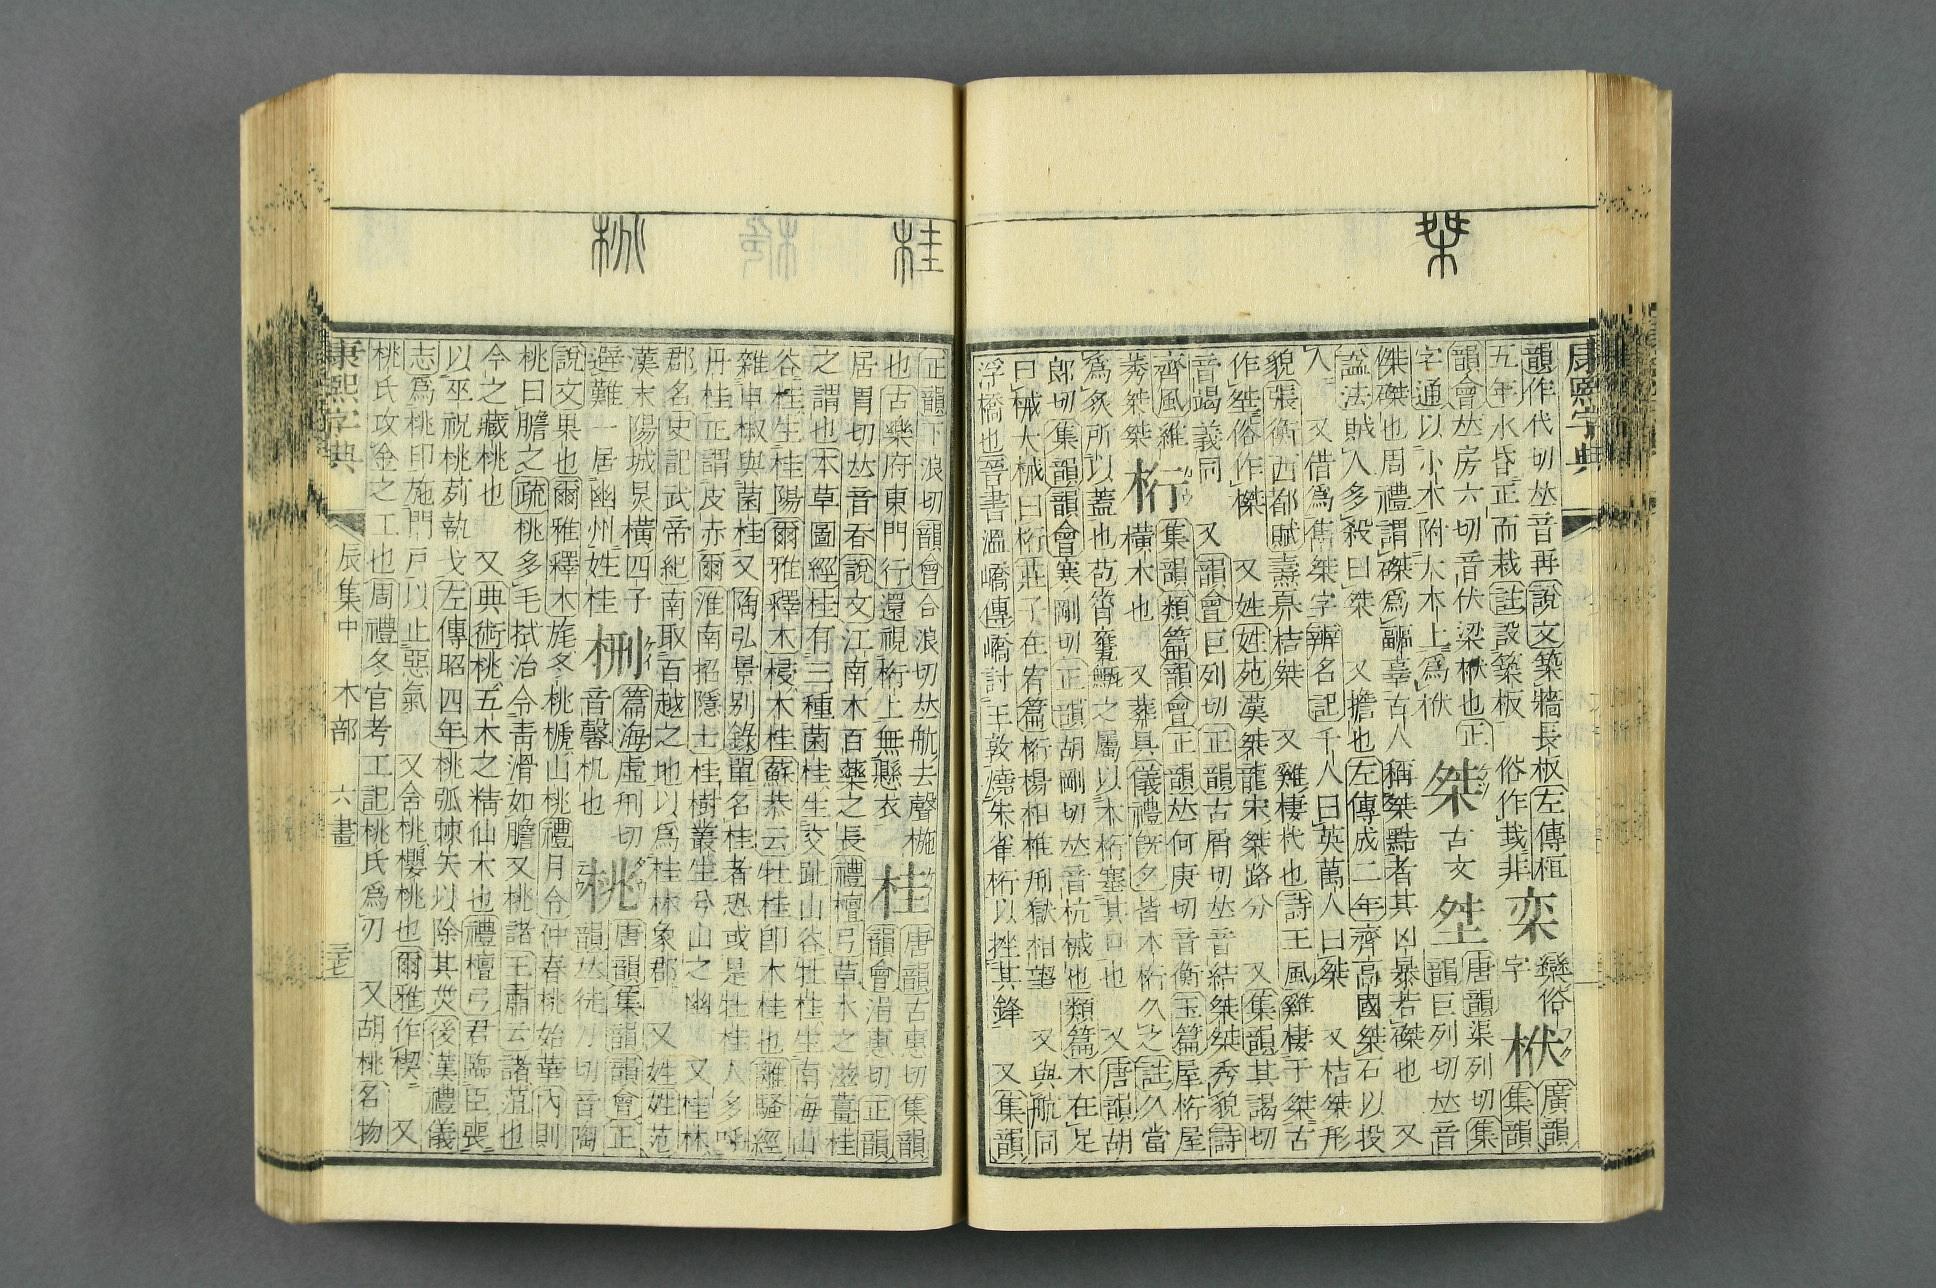 桀
康熙字典
韻作代切𠀤音再說文築牆長板左傳楨
五年水昏正而栽註設築板 俗作栽非
栾
欒俗
字
栿
廣韻
集韻
韻會𠀤房六切音伏梁栿也正
字通以小木附大木上爲栿
桀
古文
㘶
唐韻渠列切集
韻巨列切𠀤音
傑磔也周禮謂磔爲疈辜古人稱桀黠者其凶暴若磔也 又
諡法賊人多殺曰桀 又擔也左傳成二年齊高國桀石以投
人 又借爲雋桀字辨名記千人曰英萬人曰桀 又桔桀形
貌張衡西都賦燾奡桔桀 又雞棲杙也詩王風雞棲于桀古
作㘶俗作榤 又姓姓苑漢桀龍宋桀路分 又集韻其謁切
音竭義同 又韻會巨列切正韻古屑切𠀤音結桀桀秀貌詩
齊風維
莠桀桀
桁
集韻類篇韻會正韻𠀤何庚切音衡玉篇屋桁屋
橫木也 又葬具儀禮旣夕皆木桁久之註久當
爲灸所以蓋也苞筲甕甒之屬以木桁塞其口也 又唐韻胡
郎切集韻韻會寒剛切正韻胡剛切𠀤音杭械也類篇木在足
曰械大械曰桁莊子在宥篇桁楊相椎刑獄相望 又與航同
浮橋也晉書溫嶠傳嶠討王敦燒朱雀桁以挫其鋒 又集韻
桂
桃
正韻下浪切韻會合浪切𠀤航去聲椸
也古樂府東門行還視桁上無懸衣
桂
唐韻古惠切集韻
韻會涓惠切正韻
居胃切𠀤音㫔說文江南木百藥之長禮檀弓草木之滋薑桂
之謂也本草圖經桂有三種菌桂生交趾山谷牡桂生南海山
谷桂生桂陽爾雅釋木梫木桂蘇恭云牡桂卽木桂也離騷經
雜申椒與菌桂又陶弘景別錄單名桂者恐或是牡桂人多呼
丹桂正謂皮赤爾淮南招隱士桂樹叢生兮山之幽 又桂林
郡名史記武帝紀南取百越之地以爲桂林象郡 又姓姓苑
漢末陽城炅橫四子
避難一居幽州姓桂
𣐍
篇海虛刑切
音馨机也
桃
唐韻集韻韻會正
韻𠀤徒刀切音陶
說文果也爾雅釋木旄冬桃榹山桃禮月令仲春桃始華內則
桃曰膽之疏桃多毛拭治令靑滑如膽又桃諸王肅云諸菹也
今之藏桃也 又典術桃五木之精仙木也禮檀弓君臨臣喪
以巫祝桃茢執戈左傳昭四年桃弧棘矢以除其災後漢禮儀
志爲桃印施門戸以止惡氣 又含桃櫻桃也爾雅作楔 又
桃氏攻金之工也周禮冬官考工記桃氏爲刃 又胡桃名物
康熙字典 辰集中 木部 六畫 三七